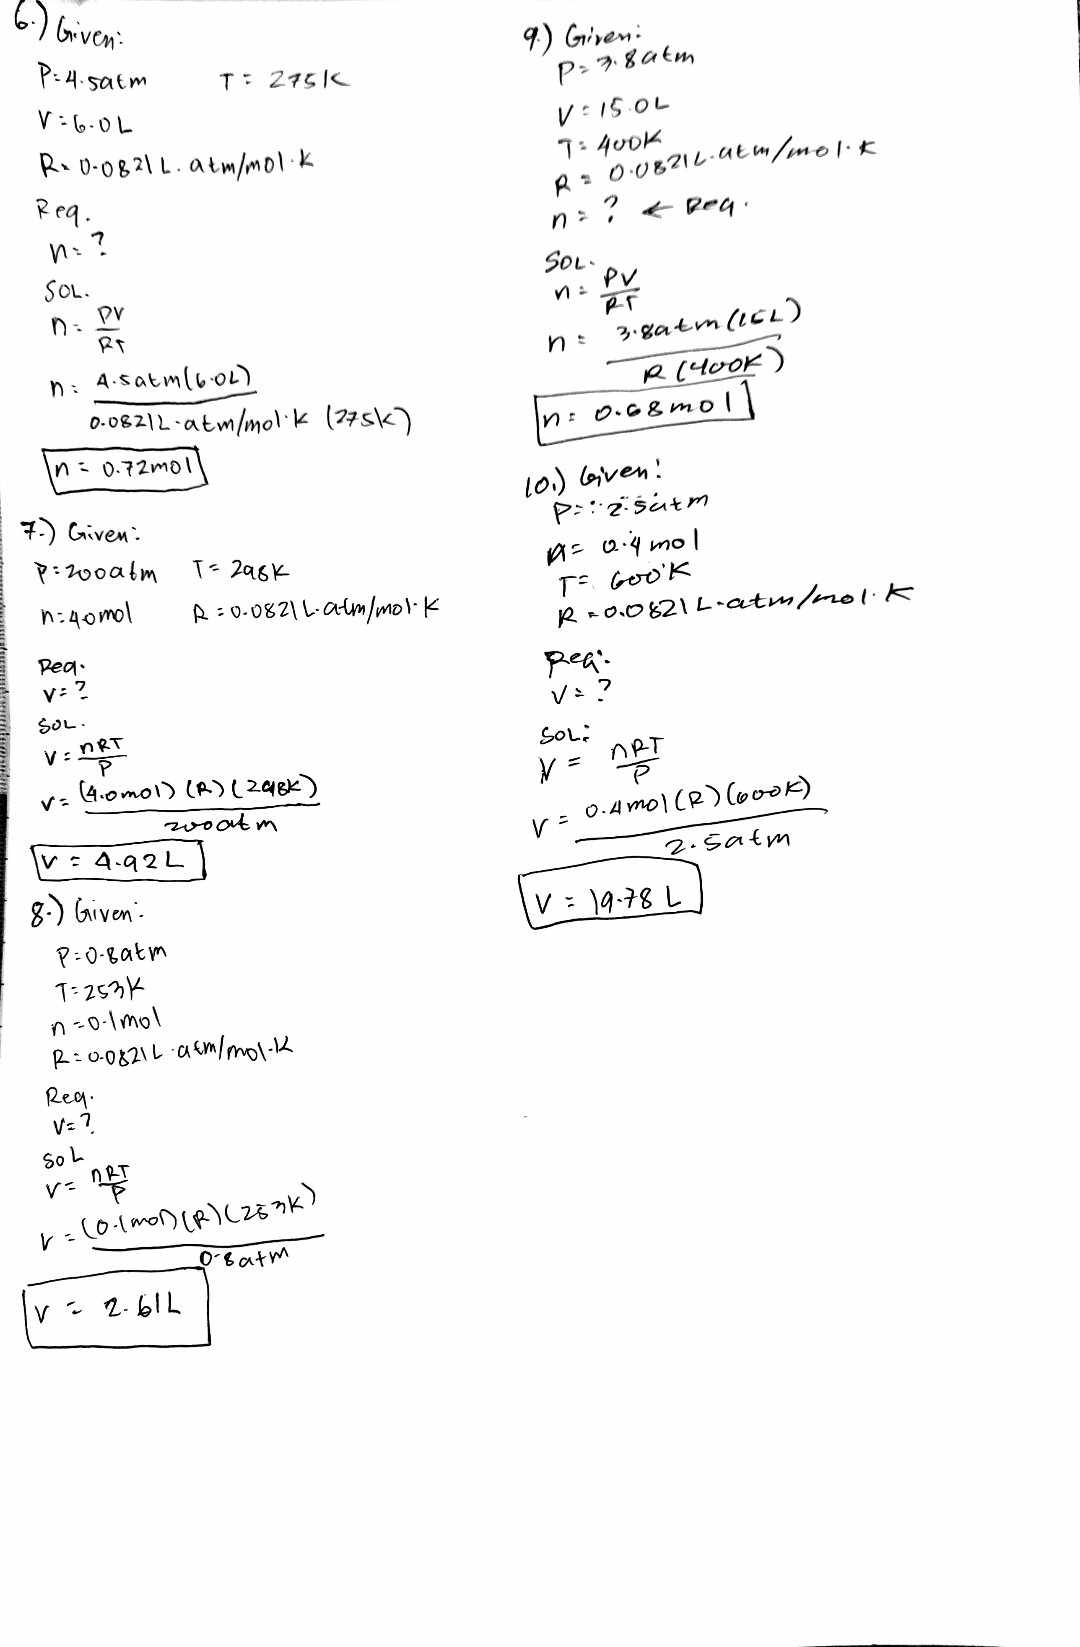 6.) Given:
P=4.5atm T= 275K
V=6.0L
R=0.0821L.atm/mol.K
Req.
n=?
SOL.
n= PV
RT
n= 4.5atm(6.0L)
0.0821L.atm/mol.K (275K)
n= 0.72mol
7.) Given:
P=200atm T= 298K
n=40mol R=0.0821L.atm/mol.K
Req.
V=?
SOL.
V=nRT
P
V= (4.0mol)(R)(298K)
200atm
V = 4.92L
8.) Given:
P=0.8atm
T=253K
n=0.1mol
R=0.0821L.atm/mol.K
Req.
V=?
SOL
V= nRT
P
V=(0.1mol)(R)(253K)
0.8atm
V = 2.61L
9.) Given:
P=3.8atm
V=15.0L
T=400K
R=0.0821L.atm/mol.K
n=? ← Req.
SOL.
n= PV
RT
n= 3.8atm(15L)
R(400K)
n= 0.68mol
10.) Given:
P= 2.5atm
n= 0.4mol
T= 600K
R=0.0821L.atm/mol.K
Req:
V=?
SOL:
V= nRT
P
V= 0.4mol(R)(600K)
2.5atm
V = 19.78 L